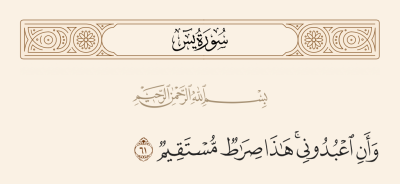 سُورَةُ يسٓ
بِسْمِ ٱللَّهِ ٱلرَّحْمَٰنِ ٱلرَّحِيمِ
وَأَنِ ٱعْبُدُونِى ۚ هَٰذَا صِرَٰطٌ مُّسْتَقِيمٌ ٦١